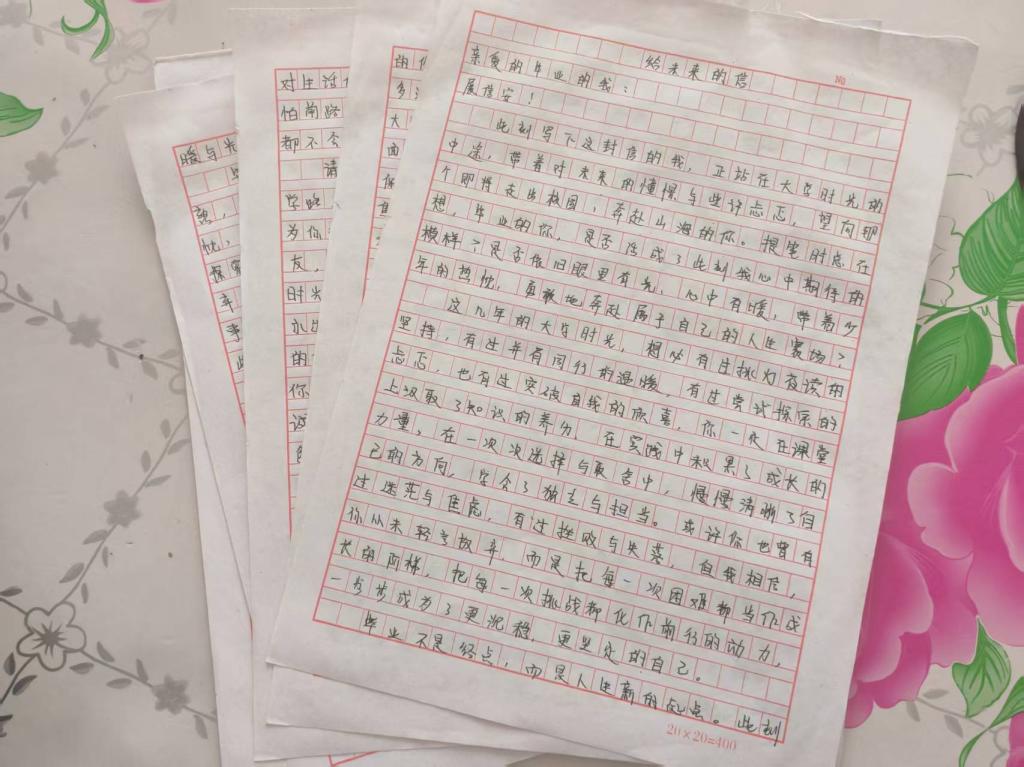 给未来的信
№
亲爱的毕业的我：
展信安！
此刻写下这封信的我，正站在大学时光的
中途，带着对未来的憧憬与些许忐忑，望向那
个即将走出校园，奔赴山海的你。提笔时总在
想，毕业的你，是否活成了此刻我心中期待的
模样？是否依旧眼里有光，心中有暖，带着少
年的热忱，勇敢地奔赴属于自己的人生赛场？
这几年的大学时光，想必有过挑灯夜读的
坚持，有过并肩同行的温暖，有过尝试探索的
忐忑，也有过突破自我的欣喜，你一定在课堂
上汲取了知识的养分，在实践中积累了成长的
力量，在一次次选择与取舍中，慢慢清晰了自
己的方向，学会了独立与担当。或许你也曾有
过迷茫与焦虑，有过挫败与失落，但我相信，
你从未轻言放弃，而是把每一次困难都当作成
长的阶梯，把每一次挑战都化作前行的动力，
一步步成为了更沉稳，更坚定的自己。
毕业不是终点，而是人生新的起点。此刻
20×20=400
的
多
大
面
你
焦
对生活
怕前路
都不会
请
学路
为你
友，
时光
的
你
暖与光
忱，
探索
幸
事
此